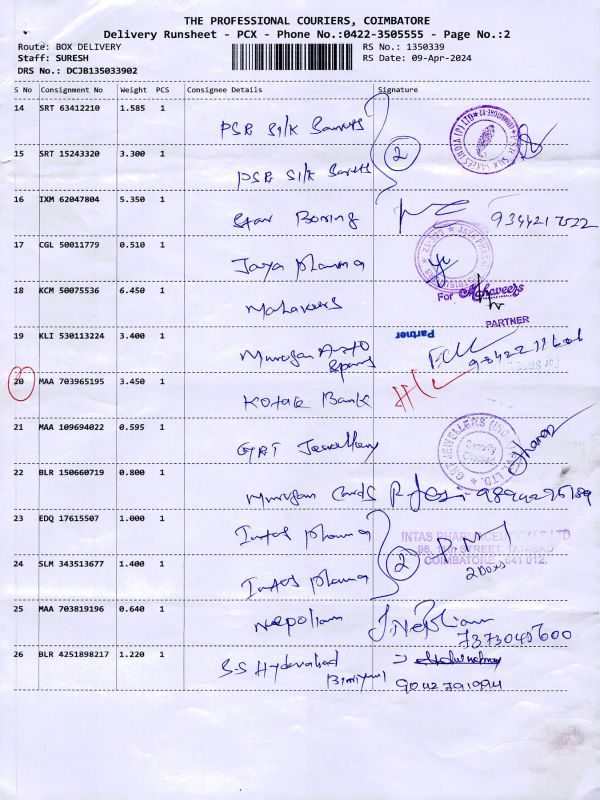 THE PROFESSIONAL COURIERS, COIMBATORE
Delivery Runsheet - PCX - Phone No.:0422-3505555 - Page No.:2
Route: BOX DELIVERY RS No.: 1350339
Staff: SURESH RS Date: 09-Apr-2024
DRS No.: DCJB135033902
S No Consignment No Weight PCS Consignee Details Signature
14 SRT 63412210 1.585 1 PSB Silk Sarees
15 SRT 15243320 3.300 1 PSB Silk Sarees 2
16 IXM 62047804 5.350 1 Star Boring
17 CGL 50011779 0.510 1 Jaya pharma
18 KCM 50075536 6.450 1 Mahaveers For Mahaveers
PARTNER
Partner
19 KLI 530113224 3.400 1 Murugan Auto
Spares
20 MAA 703965195 3.450 1 Kotak Bank
21 MAA 109694022 0.595 1 GRT Jewellery
22 BLR 150660719 0.800 1 Murugan Cards
23 EDQ 17615507 1.000 1 Intas pharma
INTAS PHARMACEUTICALS LTD
24 SLM 343513677 1.400 1 Intas pharma 2 2 Boxs
COIMBATORE - 641 012.
25 MAA 703819196 0.640 1 Nepoliam
7373045600
26 BLR 4251898217 1.220 1 S.S Hyderabad
Biriyani